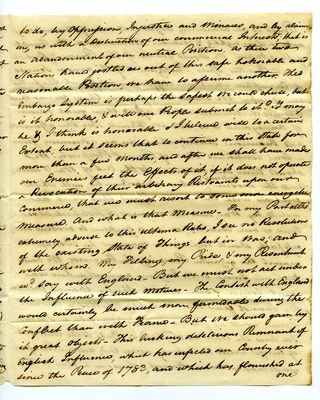 to do, by Oppression, Injustice and Menaces, and by alarm
ing us with a Destruction of our commercial Interest, that is
an abandonment of our neutral Position. As these two
Nations have jostled us out of this safe honorable and
reasonable Position we have to assume another. The
Embargo System is perhaps the safest we could chuse, but
is it honorable, & will our People submit to it? It may
be & I think is honorable. I believe wise to a certain
Extent, but it seems that to continue in this State for
more than a few Months, and after we shall have made
our Enemies feel the Effects of it, if it does not operate
a Revocation of their arbitrary Restraints upon our
Commerce, that we must resort to some more energetic
Measure. And what is that Measure. For my Part altho
extremely averse to this ultima Ratio, I see no Resolution
of the existing State of Things but in War, and
with whom. My Feelings, my Pride & my Resentment
wd. say with England - But we must not act under
the Influence of such Motives. The Contest with England
would certainly be much more formidable during the
Conflict than with France - But we should gain by
it great Objects - This lurking deleterious Remnant of
English Influence, which has infected our Country ever
since the Peace of 1783, and which has flourished at
one